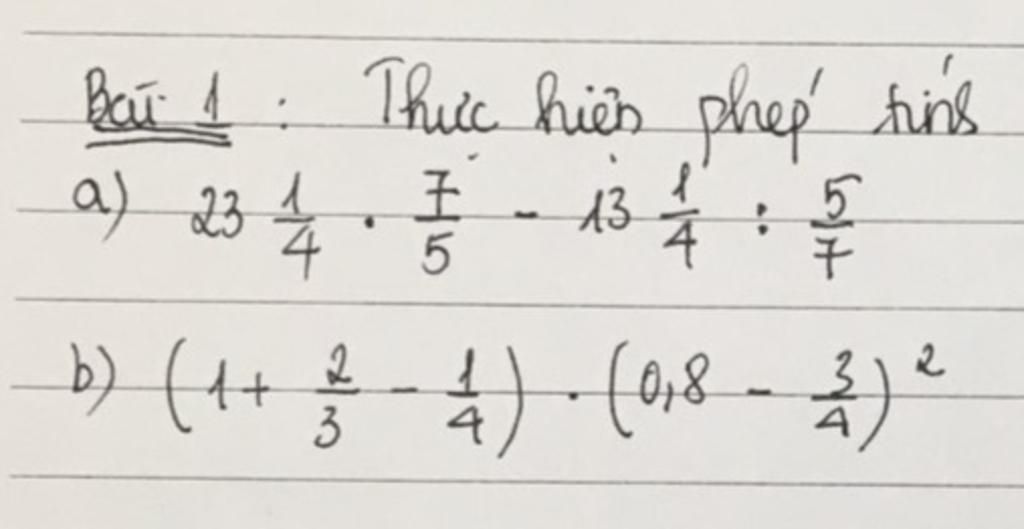 Bài 1 : Thực hiện phép tính
a) 23 1/4 . 7/5 - 13 1/4 : 5/7
b) (1 + 2/3 - 1/4) . (0,8 - 3/4)²